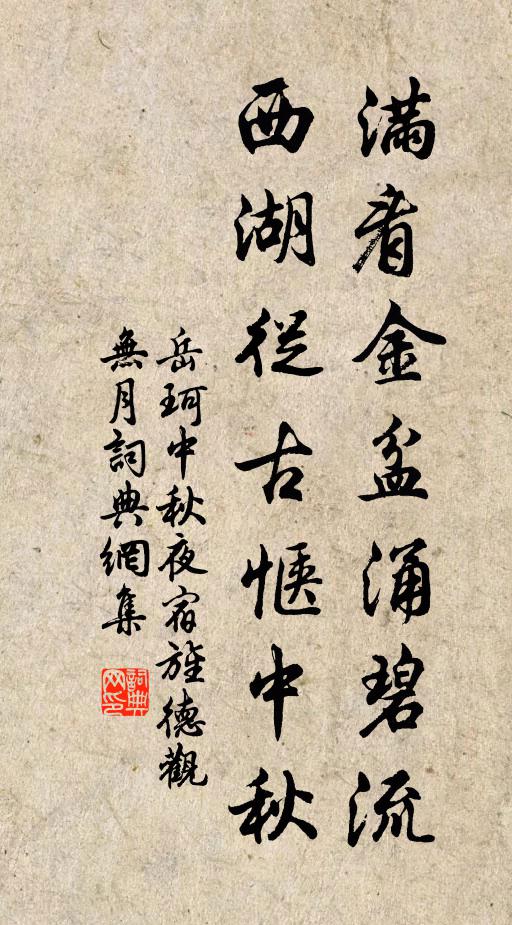 滿看金盆涌碧流
西湖從古愜中秋
岳珂中秋夜宿旌德觀
無月詞典網集
詞典网印